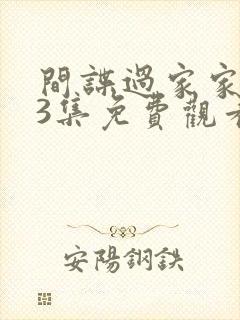 間諜過家家
3集免費觀看
安陽鋼鉄